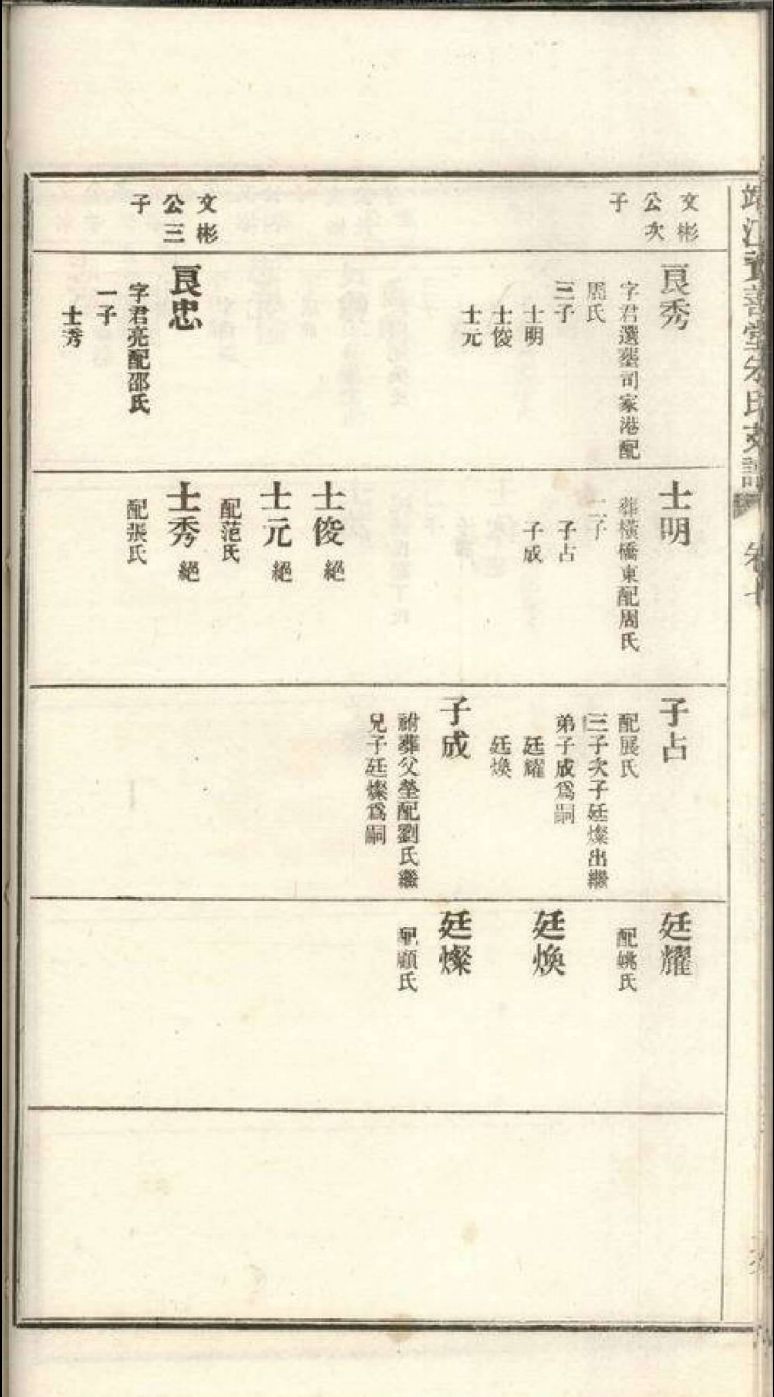 靖江 善堂朱氏支譜
卷七
文彬
公次
子
良秀
字君選塟司家港配
周氏
三子
士明
士俊
士元
文彬
公三
子
良忠
字君亮配邵氏
一子
士秀
士明
葬橫橋東配周氏
二子
子占
子成
士俊 絕
士元 絕
配范氏
士秀 絕
配張氏
子占
配展氏
三子次子廷燦出繼
弟子成爲嗣
廷耀
廷煥
子成
祔葬父塋配劉氏繼
兄子廷燦爲嗣
廷耀
配姚氏
廷煥
廷燦
配顧氏